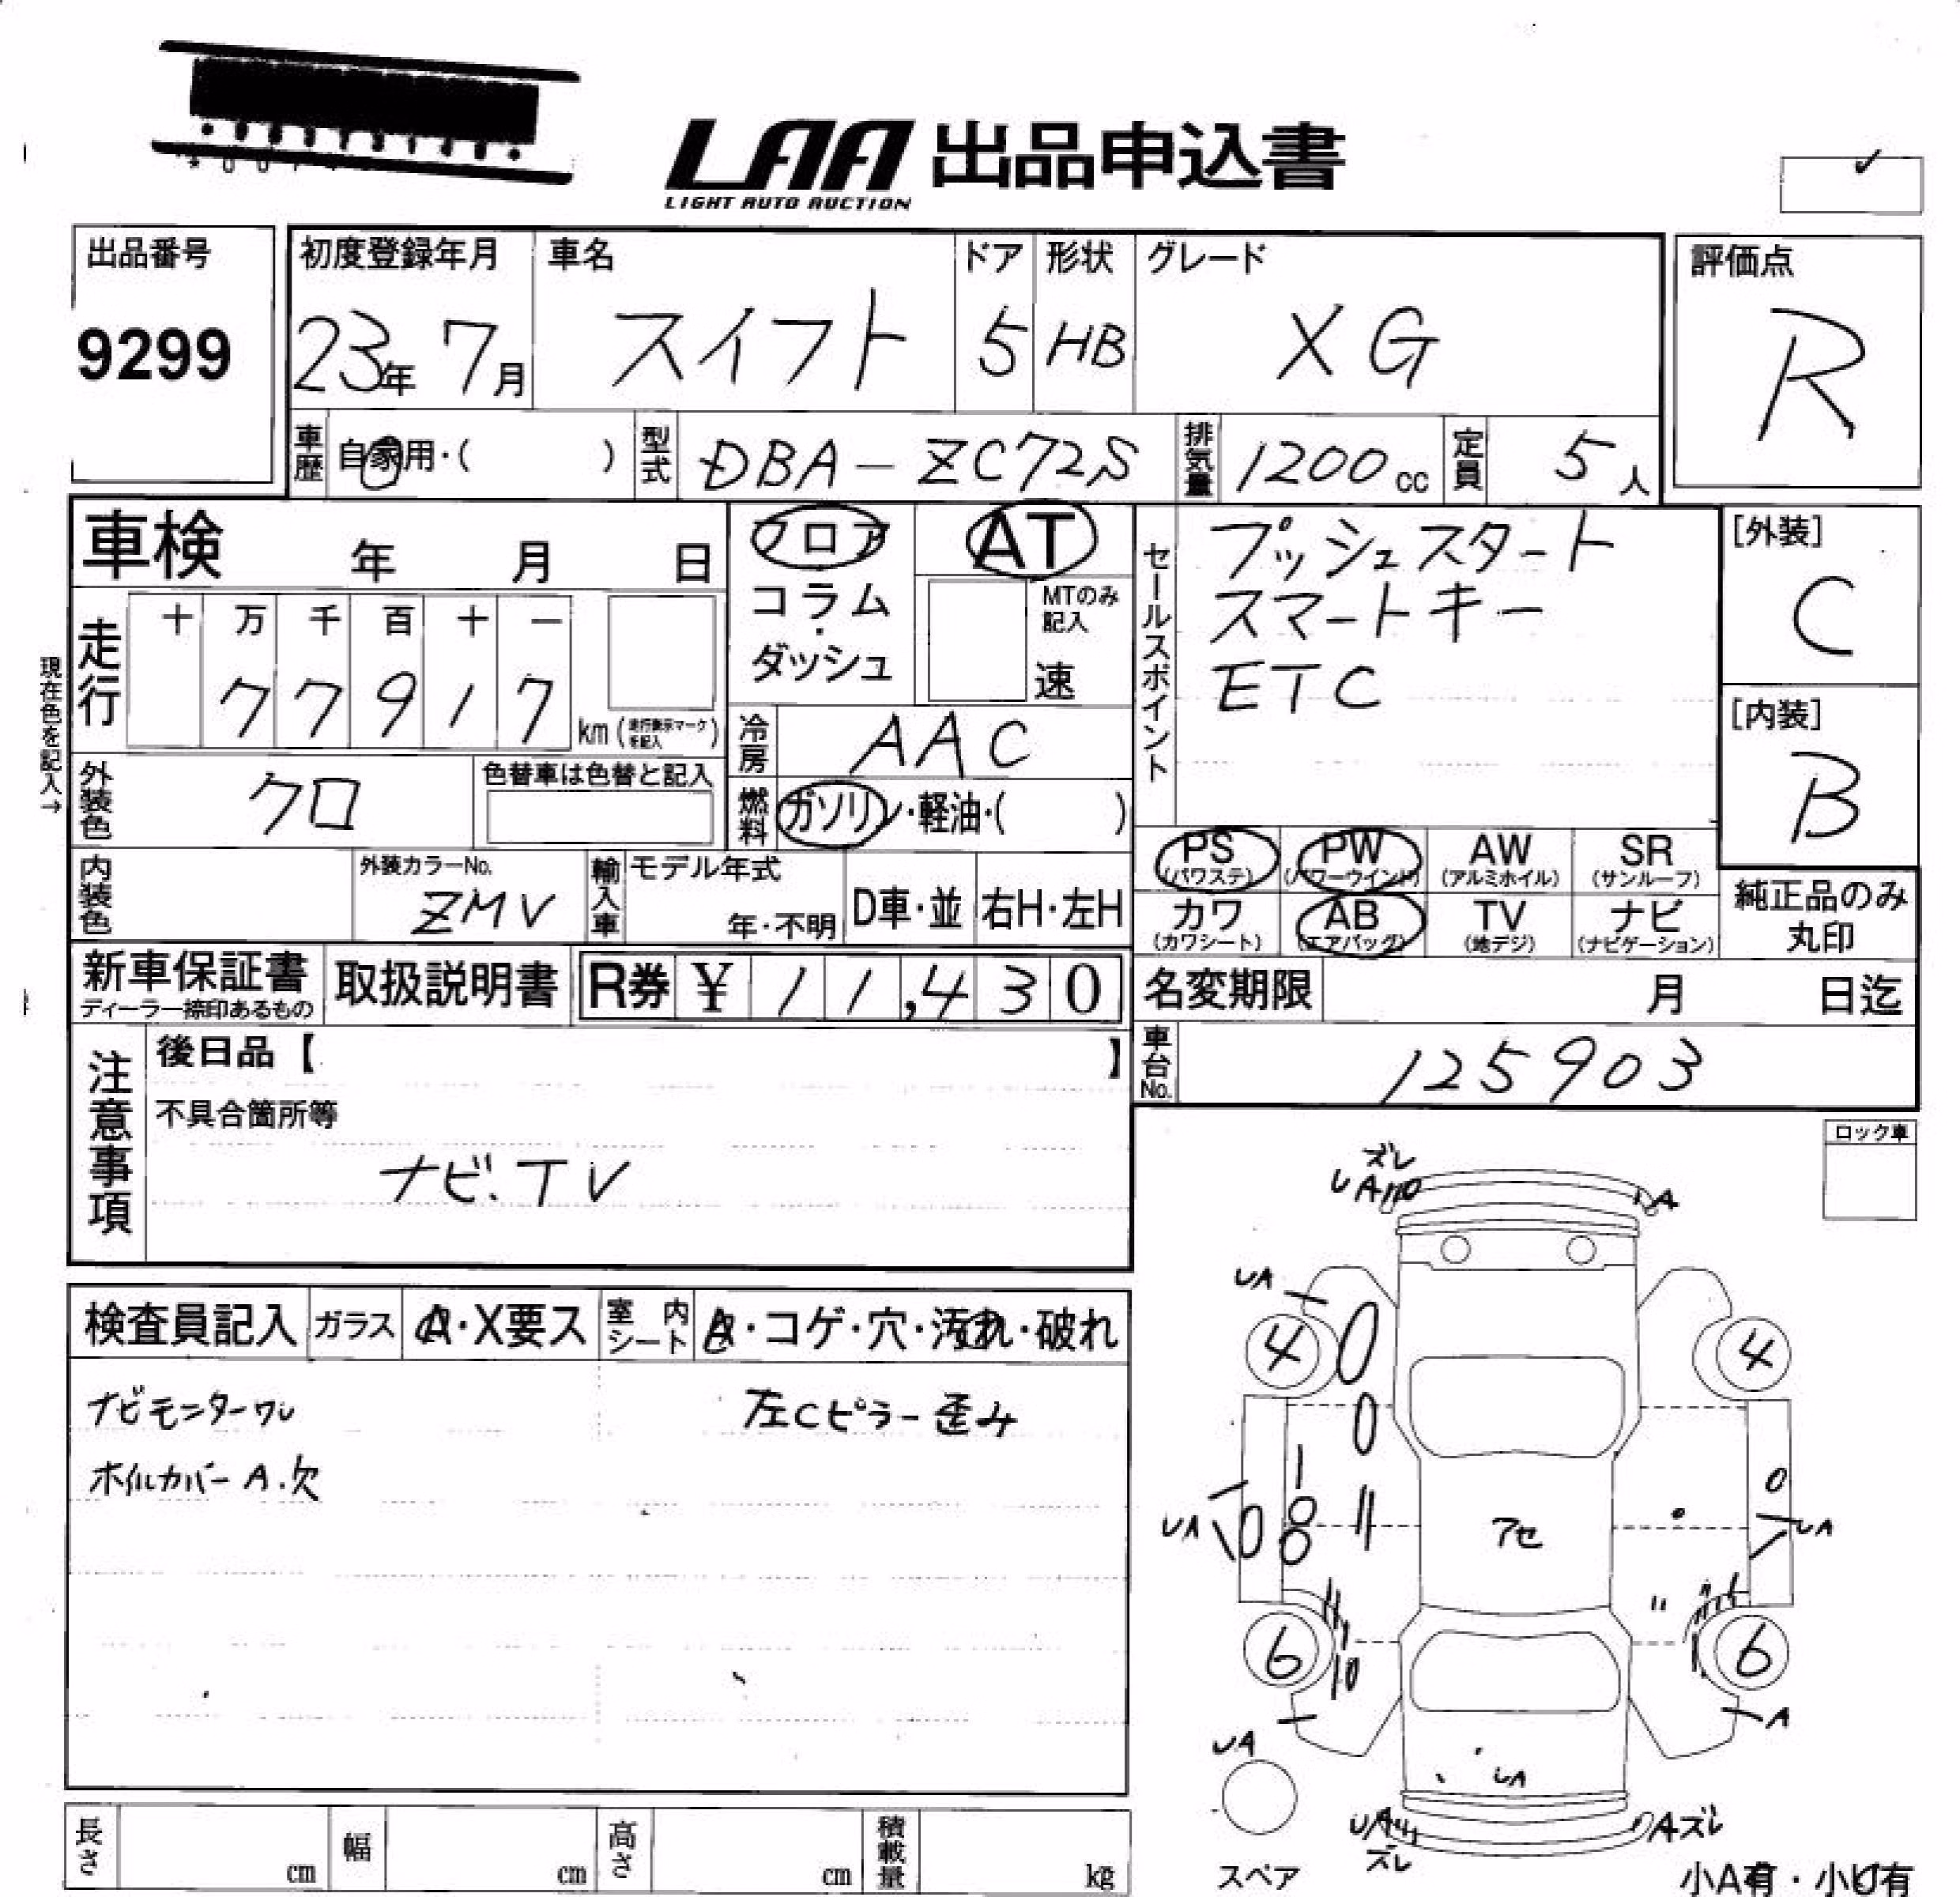 LAA 出品申込書
LIGHT AUTO AUCTION
出品番号
9299
初度登録年月 車名 ドア 形状 グレード
23年 7月 スイフト 5 HB XG
評価点
R
車歴 自家用・( ) 型式 DBA-ZC72S 排気量 1200cc 定員 5人
車検 年 月 日
フロア
コラム
・
ダッシュ
AT
MTのみ
記入
速
セールスポイント
プッシュスタート
スマートキー
ETC
[外装]
C
[内装]
B
現在色を記入→
走行 十 万 千 百 十 一
7 7 9 1 7 km (走行表示マークを記入)
冷房 AAC
外装色 クロ 色替車は色替と記入
燃料 ガソリン・軽油・( )
PS (パワステ) PW (パワーウインド) AW (アルミホイル) SR (サンルーフ)
カワ (カワシート) AB (エアバッグ) TV (地デジ) ナビ (ナビゲーション)
純正品のみ
丸印
内装色 外装カラーNo. ZMV 輸入車 モデル年式 年・不明 D車・並 右H・左H
新車保証書
ディーラー捺印あるもの
取扱説明書 R券 ¥ 11,430
名変期限 月 日迄
車台No. 125903
注意事項
後日品【 】
不具合箇所等
ナビ.TV
ロック車
検査員記入 ガラス A・X要ス 室内シート A・コゲ・穴・汚れ・破れ
ナビモニターワレ 左Cピラー歪み
ホイルカバーA.欠
ズレ
UA
A
UA
4 4
UA
アセ
UA
6 6
UA
A
UA
UA
ズレ
Aズレ
スペア
小A有・小U有
長さ cm 幅 cm 高さ cm 積載量 kg